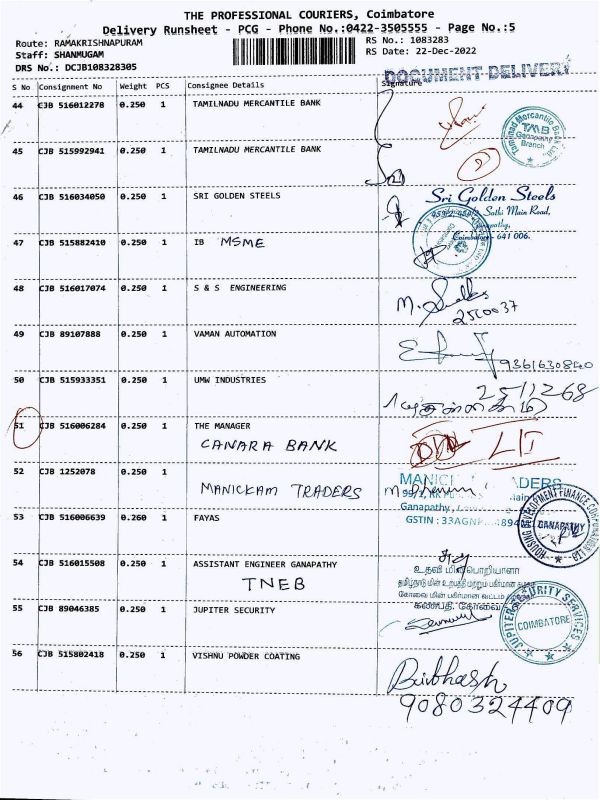 THE PROFESSIONAL COURIERS, Coimbatore
Delivery Runsheet - PCG - Phone No.:0422-3505555 - Page No.:5
Route: RAMAKRISHNAPURAM
RS No.: 1083283
Staff: SHANMUGAM
RS Date: 22-Dec-2022
DRS No.: DCJB108328305
DOCUMENT DELIVERY
S No Consignment No Weight PCS Consignee Details Signature
44 CJB 516012278 0.250 1 TAMILNADU MERCANTILE BANK
Tamilnad Mercantile Bank Ltd. TMB Ganapathy Branch
45 CJB 515992941 0.250 1 TAMILNADU MERCANTILE BANK
46 CJB 516034050 0.250 1 SRI GOLDEN STEELS
Sri Golden Steels
Sathi Main Road,
Coimbatore - 641 006.
47 CJB 515882410 0.250 1 IB MSME
48 CJB 516017074 0.250 1 S & S ENGINEERING
2560037
49 CJB 89107888 0.250 1 VAMAN AUTOMATION
9361630840
50 CJB 515933351 0.250 1 UMW INDUSTRIES
51 CJB 516006284 0.250 1 THE MANAGER
CANARA BANK
52 CJB 1252078 0.250 1
MANICKAM TRADERS
Ganapathy,
GSTIN : 33AGN
53 CJB 516006639 0.260 1 FAYAS
HOUSING DEVELOPMENT FINANCE CORPORATION LTD GANAPATHY
54 CJB 516015508 0.250 1 ASSISTANT ENGINEER GANAPATHY
TNEB
உதவி மின்பொறியாளர்
55 CJB 89046385 0.250 1 JUPITER SECURITY
JUPITER SECURITY SERVICES COIMBATORE
56 CJB 515802418 0.250 1 VISHNU POWDER COATING
Bibhash
9080324409